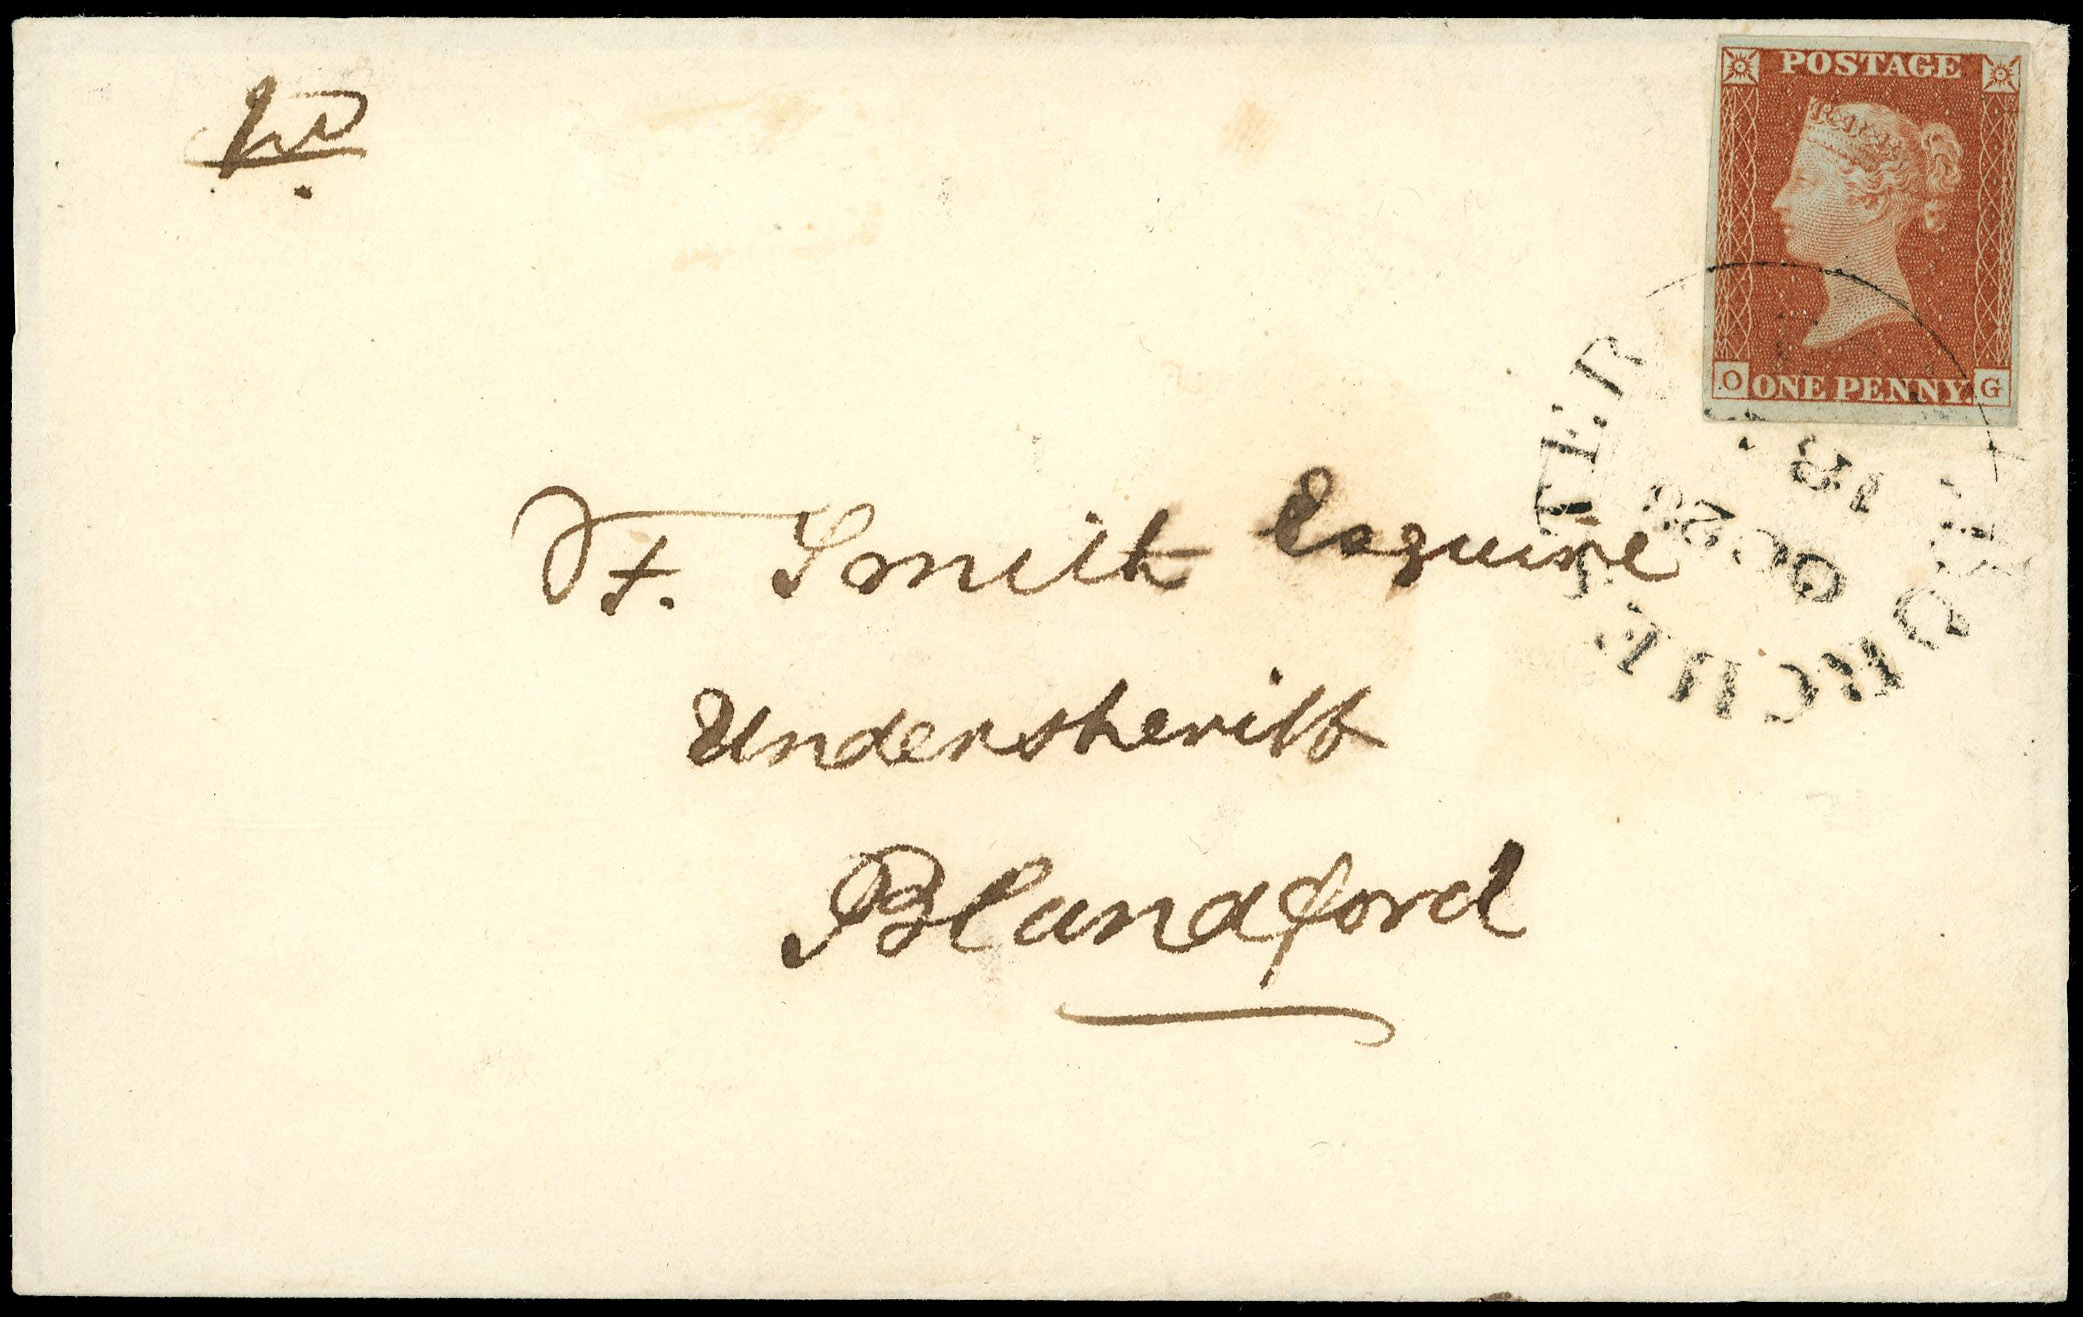 POSTAGE
O ONE PENNY. G
F. Smith Esquire
Undersheriff
Blandford
DORCHESTER
OC 28
18